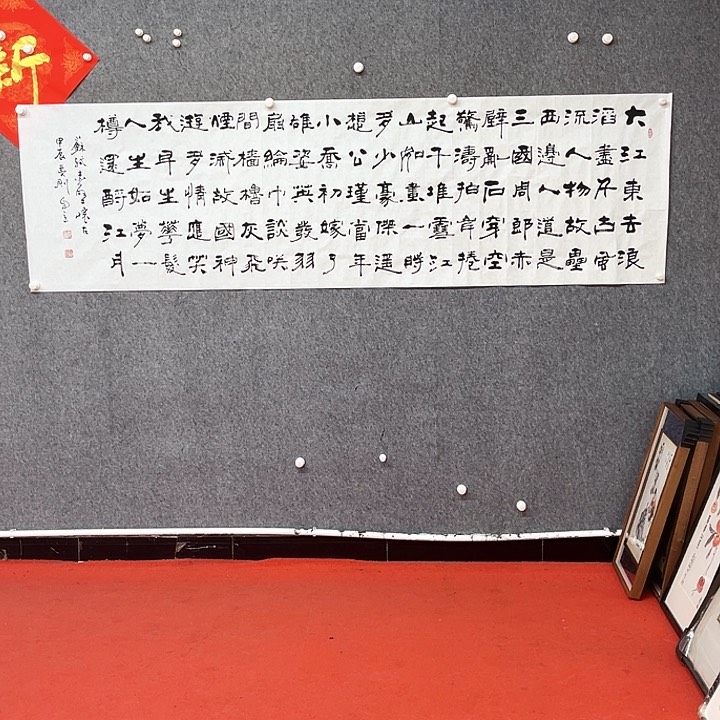 新
大江東去浪
淘盡千古風
流人物故壘
西邊人道是
三國周郎赤
壁亂石穿空
驚濤拍岸捲
起千堆雪江
山如畫一時
多少豪傑遥
想公瑾當年
小喬初嫁了
雄姿英發羽
扇綸巾談笑
間檣櫓灰飛
煙滅故國神
遊多情應笑
我早生華髮
人生如夢一
樽還酹江月
蘇軾赤壁懷古
甲辰